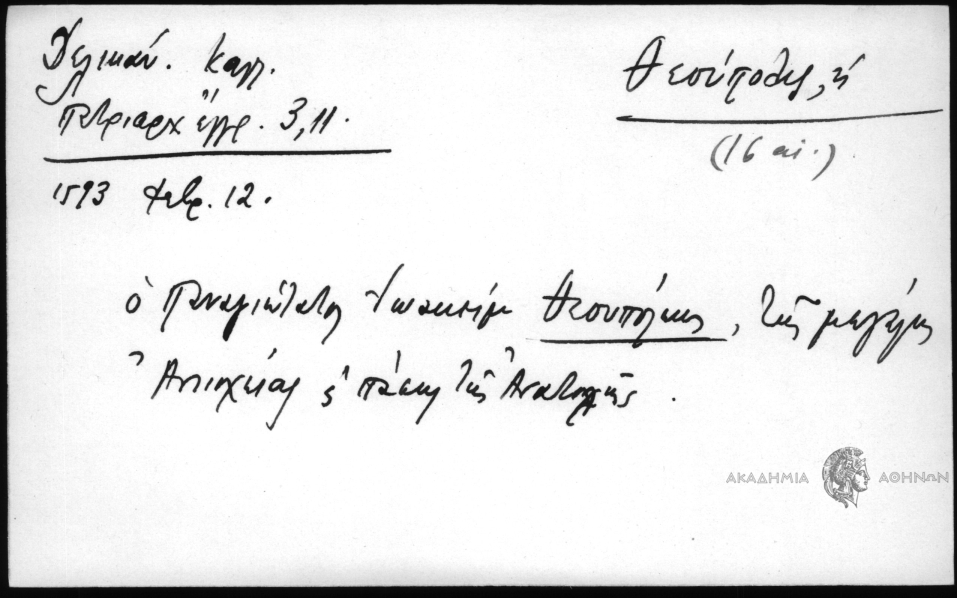 Δελικάν. Καλλ.
Πατριαρχ. ἔγγρ. 3,11.
1593 Φεβρ. 12.
Θεούπολις, ἡ
(16 αἰ.)
ὁ Παναγιώτατος Ἰωακεὶμ Θεουπόλεως, τῆς μεγάλης
Ἀντιοχείας ς πάσης τῆς Ἀνατολῆς.
ΑΚΑΔΗΜΙΑ ΑΘΗΝΩΝ